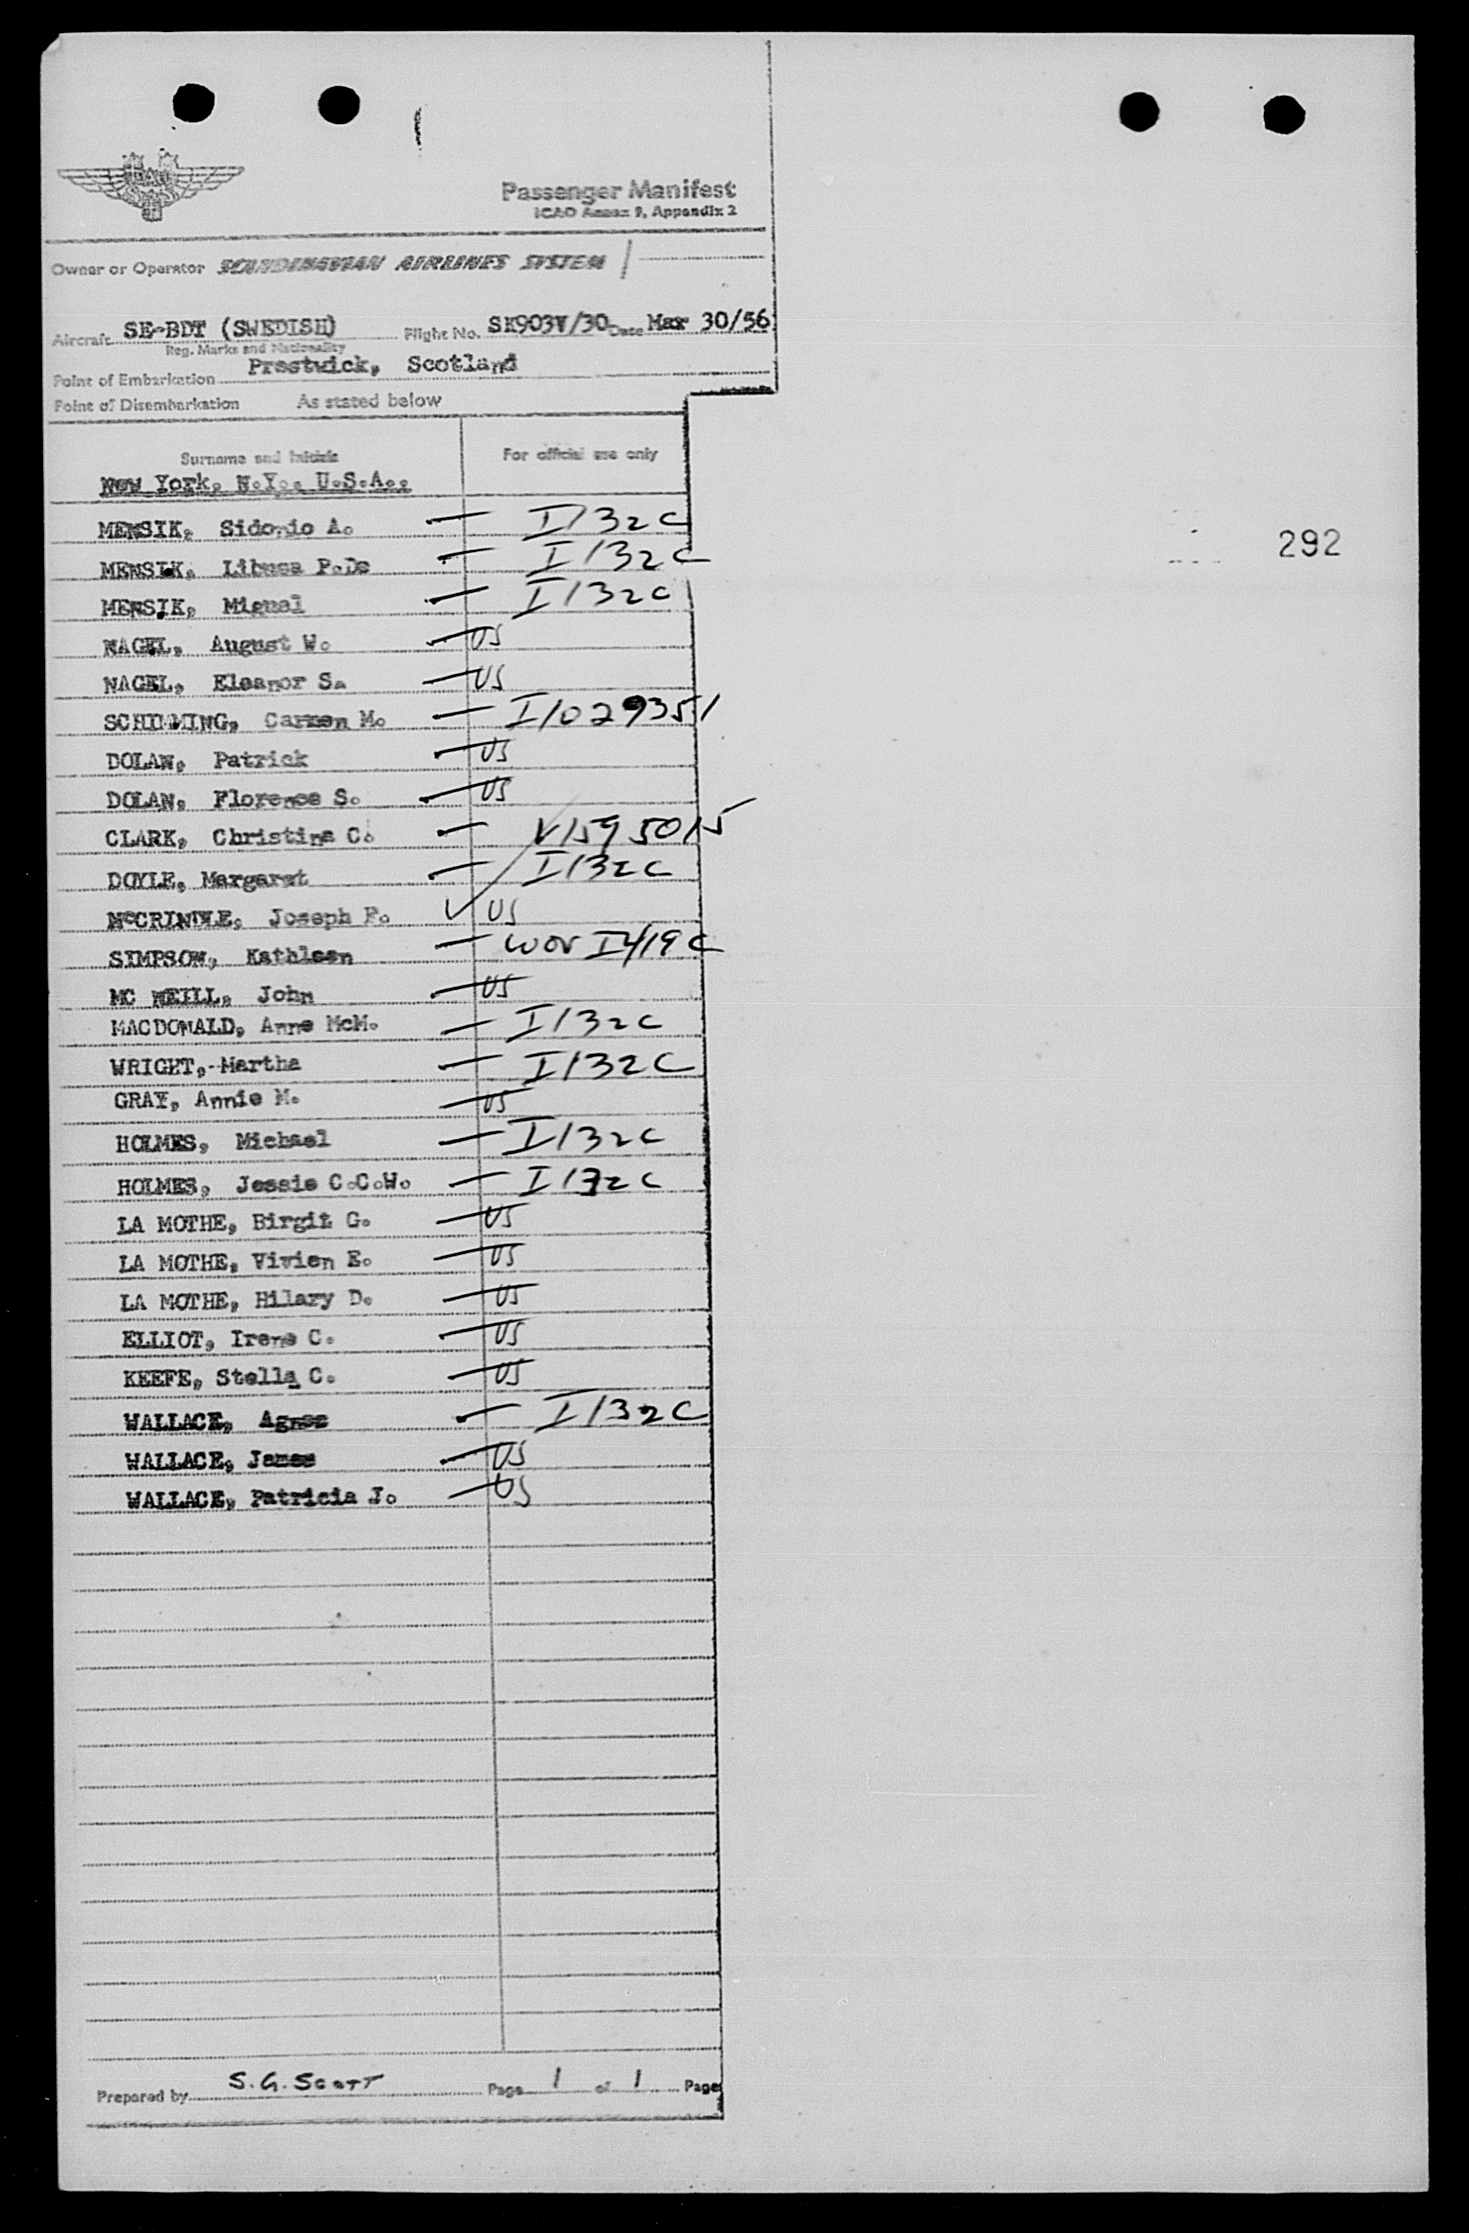 Passenger Manifest
ICAO Annex 9, Appendix 2
Owner or Operator SCANDINAVIAN AIRLINES SYSTEM
Aircraft SE-BDT (SWEDISH) Flight No. SK903V/30 Date Mar 30/56
Reg. Marks and Nationality
Point of Embarkation Prestwick, Scotland
Point of Disembarkation As stated below
Surname and Initials For official use only
New York, N.Y., U.S.A.:
MENSIK, Sidonio A. — I132C
MENSIK, Libusa P.De — I132C
MENSIK, Miguel — I132C
NAGEL, August W. — US
NAGEL, Eleanor S. — US
SCHIMMING, Carmen M. — I1029351
DOLAN, Patrick — US
DOLAN, Florence S. — US
CLARK, Christina C. — V1595015
DOYLE, Margaret — I132C
McCRINDLE, Joseph F. ✓ US
SIMPSON, Kathleen — I419C
MC NEILL, John — US
MACDONALD, Anne McM. — I132C
WRIGHT,-Martha — I132C
GRAY, Annie M. — US
HOLMES, Michael — I132C
HOLMES, Jessie C.C.W. — I132C
LA MOTHE, Birgit G. — US
LA MOTHE, Vivien E. — US
LA MOTHE, Hilary D. — US
ELLIOT, Irene C. — US
KEEFE, Stella C. — US
WALLACE, Agnes — I132C
WALLACE, James — US
WALLACE, Patricia J. — US
292
Prepared by S. G. Scott Page 1 of 1 Pages